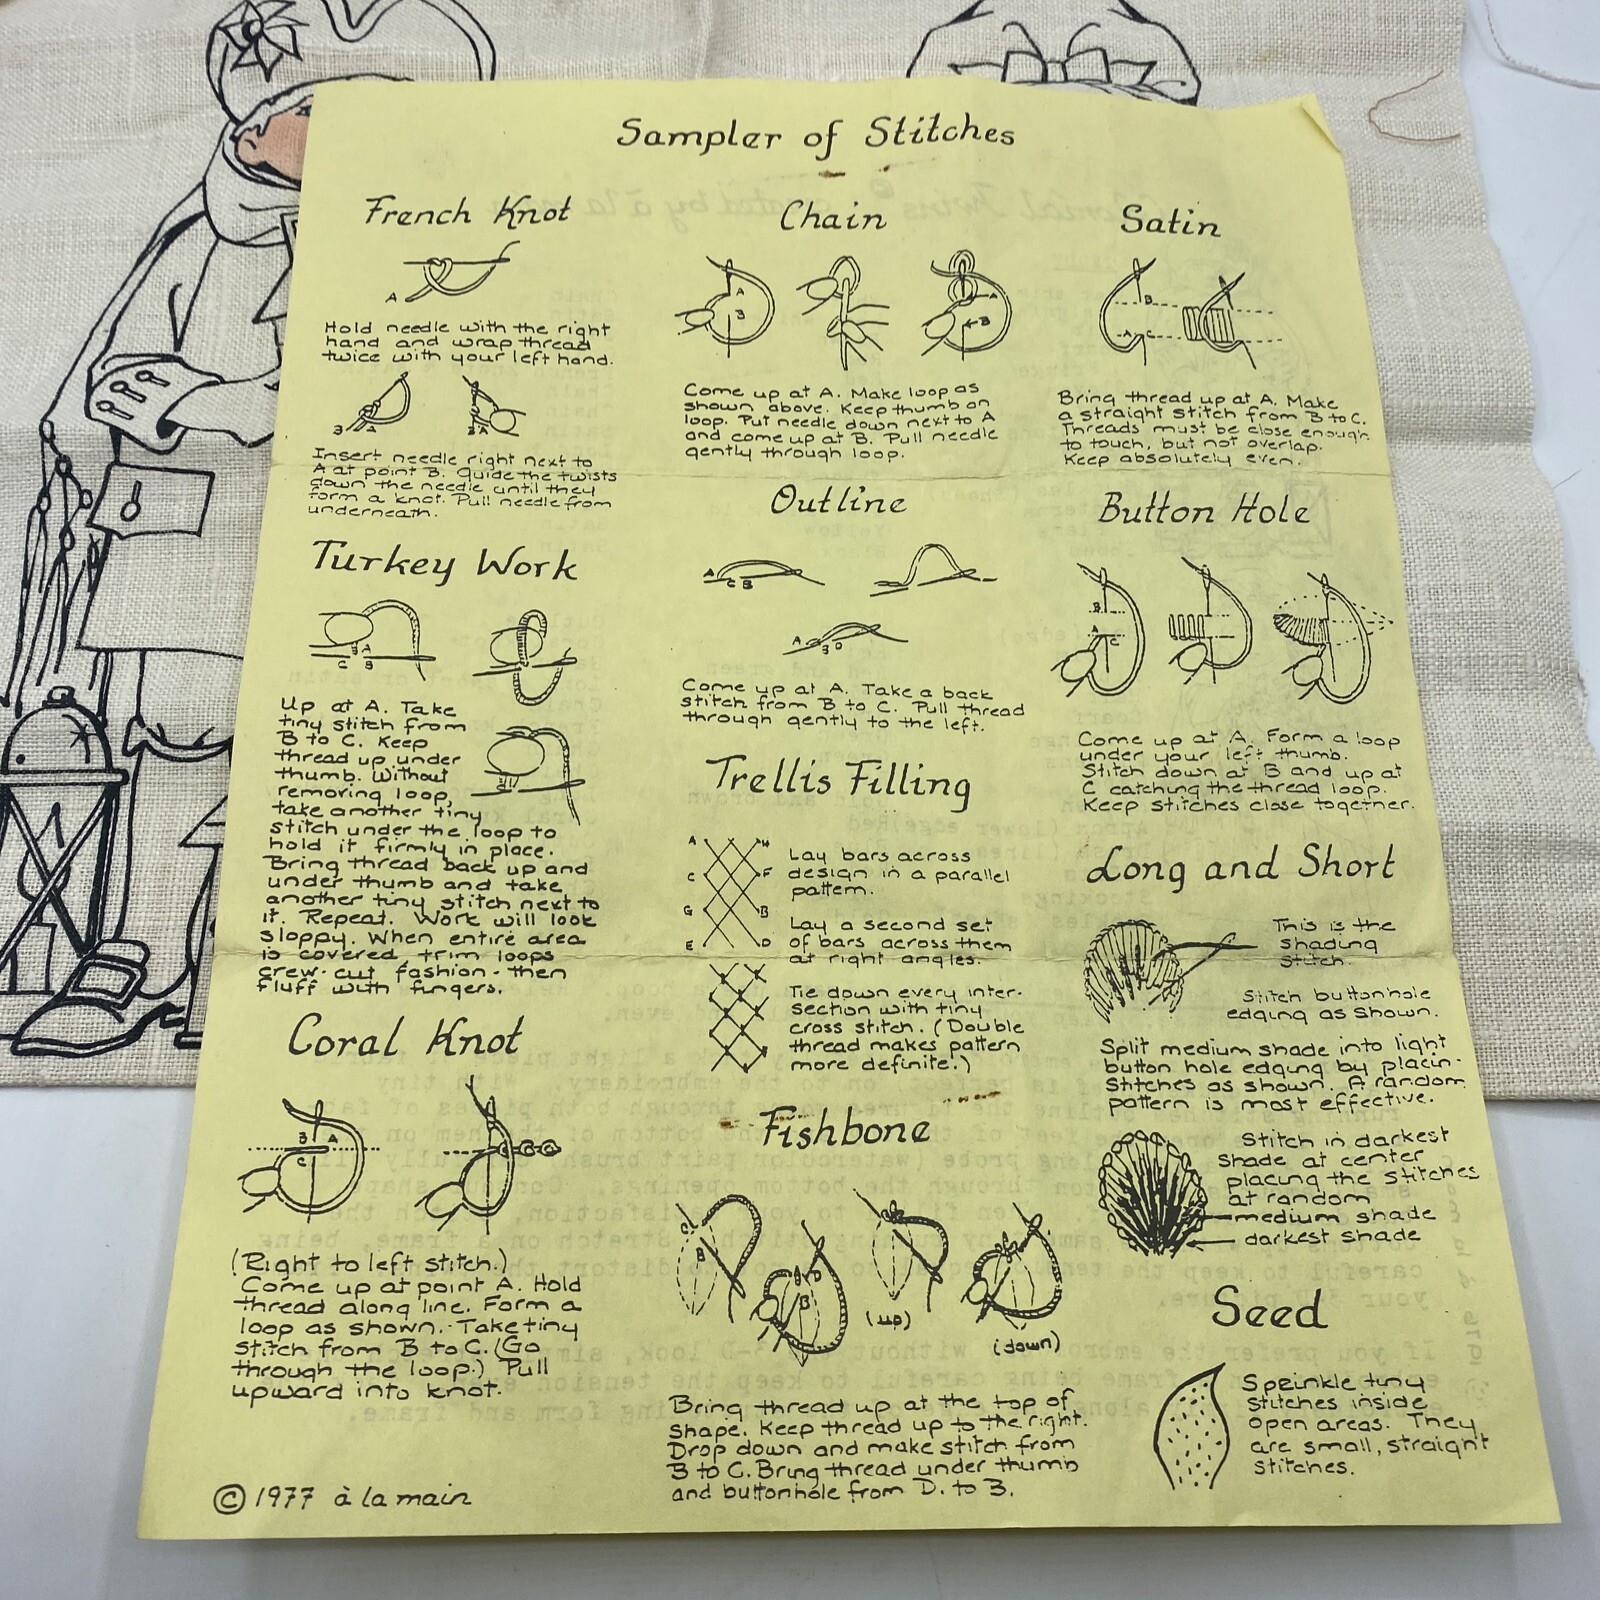 Sampler of Stitches
French Knot
A
Hold needle with the right
hand and wrap thread
twice with your left hand.
B A
B A
Insert needle right next to
A at point B. Guide the twists
down the needle until they
form a knot. Pull needle from
underneath.
Turkey Work
B A
C B
Up at A. Take
tiny stitch from
B to C. Keep
thread up under
thumb. Without
removing loop,
take another tiny
stitch under the loop to
hold it firmly in place.
Bring thread back up and
under thumb and take
another tiny stitch next to
it. Repeat. Work will look
sloppy. When entire area
is covered, trim loops
crew-cut fashion - then
fluff with fingers.
Coral Knot
B A
C
(Right to left stitch.)
Come up at point A. Hold
thread along line. Form a
loop as shown. Take tiny
stitch from B to C. (Go
through the loop.) Pull
upward into knot.
© 1977 à la main
Chain
A
B
A
B
Come up at A. Make loop as
shown above. Keep thumb on
loop. Put needle down next to A
and come up at B. Pull needle
gently through loop.
Outline
A C B
A B D
Come up at A. Take a back
stitch from B to C. Pull thread
through gently to the left.
Trellis Filling
A H
C F
G B
E D
Lay bars across
design in a parallel
pattern.
Lay a second set
of bars across them
at right angles.
Tie down every inter-
section with tiny
cross stitch. (Double
thread makes pattern
more definite.)
Fishbone
C
B
D
B
(up)
(down)
Bring thread up at the top of
shape. Keep thread up to the right.
Drop down and make stitch from
B to C. Bring thread under thumb
and buttonhole from D. to B.
Satin
B
A C
Bring thread up at A. Make
a straight stitch from B to C.
Threads must be close enough
to touch, but not overlap.
Keep absolutely even.
Button Hole
B
A C
Come up at A. Form a loop
under your left thumb.
Stitch down at B and up at
C catching the thread loop.
Keep stitches close together.
Long and Short
This is the
shading
stitch.
Stitch buttonhole
edging as shown.
Split medium shade into light
button hole edging by placin-
stitches as shown. A random
pattern is most effective.
Stitch in darkest
shade at center
placing the stitches
at random
medium shade
darkest shade
Seed
Sprinkle tiny
stitches inside
open areas. They
are small, straight
stitches.